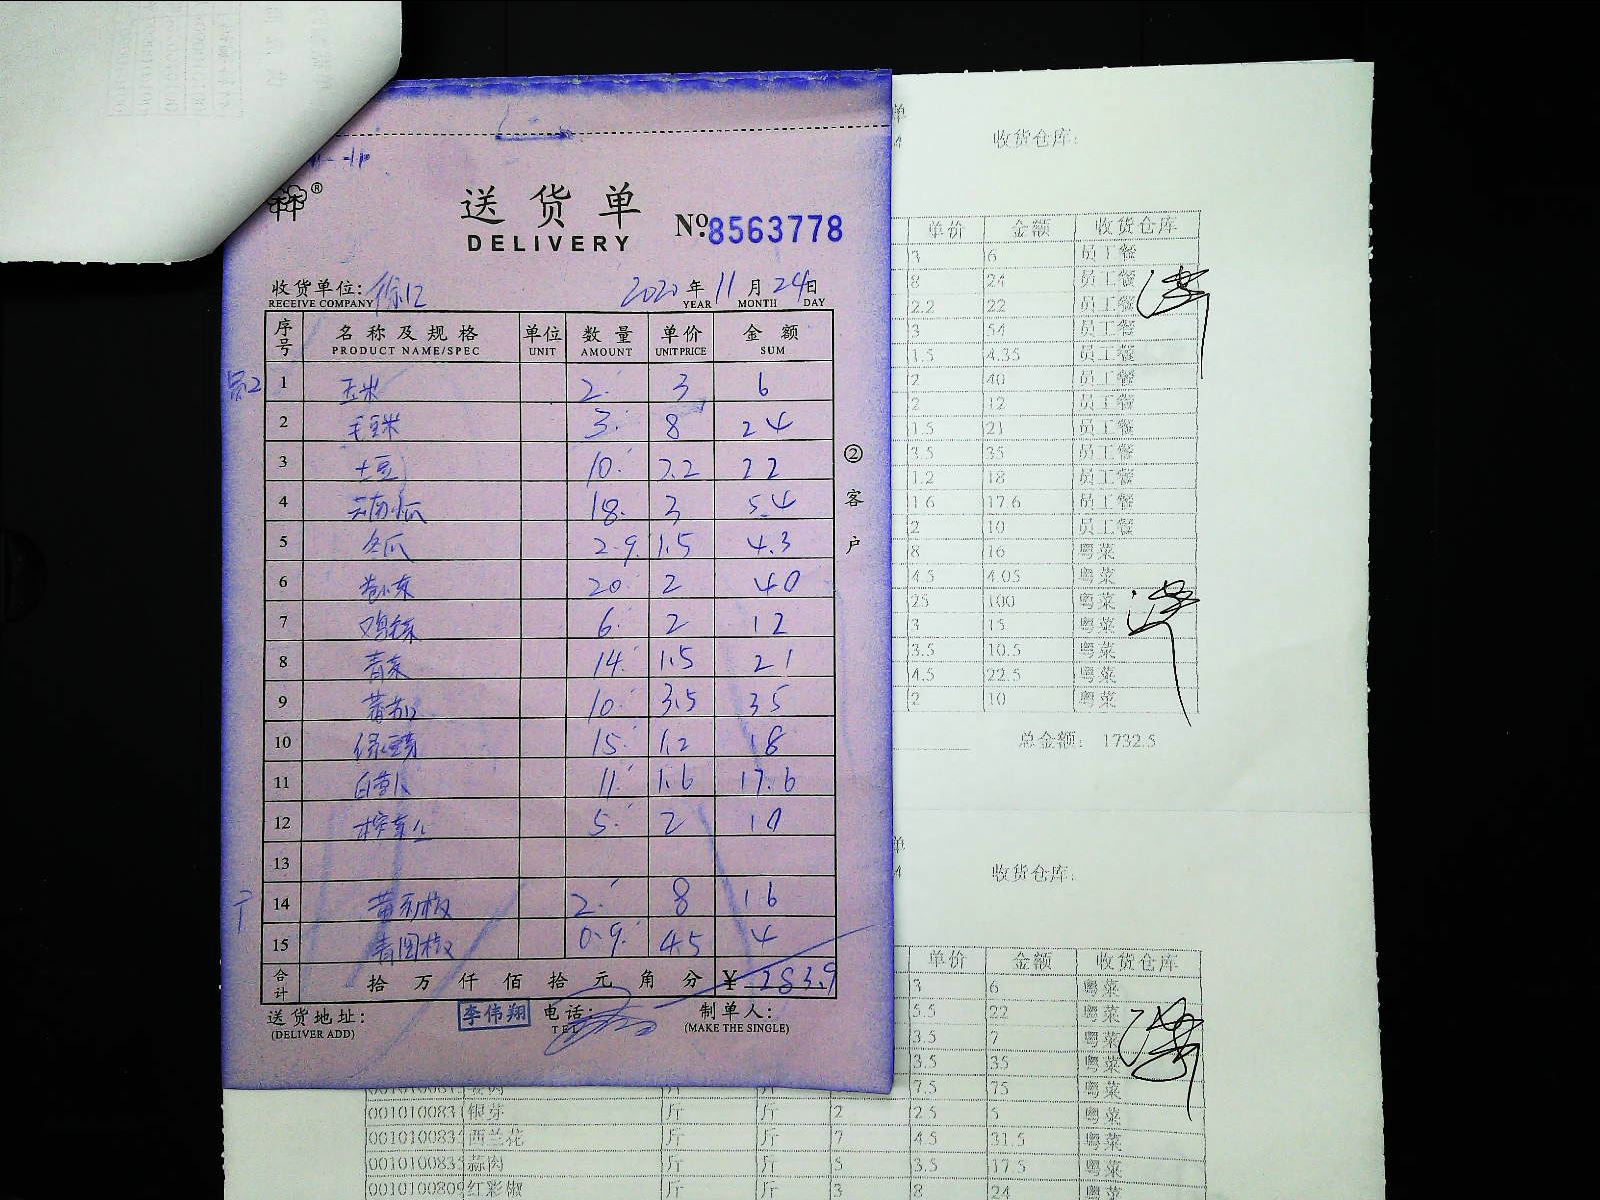 送货单
DELIVERY
№8563778
收货单位:
RECEIVE COMPANY
2020年11月24日
YEAR MONTH DAY
序号 名称及规格 单位 数量 单价 金额
PRODUCT NAME/SPEC UNIT AMOUNT UNIT PRICE SUM
1 玉米 2 3 6
2 毛豆米 3 8 24
3 土豆 10 2.2 22
4 云南小瓜 18 3 54
5 冬瓜 2.9 1.5 4.3
6 20 2 40
7 6 2 12
8 青菜 14 1.5 21
9 10 3.5 35
10 绿豆芽 15 1.2 18
11 白萝卜 11 1.6 17.6
12 榨菜丝 5 2 10
13
14 黄彩椒 2 8 16
15 青圆椒 0.9 4.5 4
合计 拾万仟佰拾元角分 ¥283.9
送货地址:
(DELIVER ADD)
李伟翔
电话:
TEL
制单人:
(MAKE THE SINGLE)
②客户
单
收货仓库:
单价 金额 收货仓库
3 6 员工餐
8 24 员工餐
2.2 22 员工餐
3 54 员工餐
1.5 4.35 员工餐
2 40 员工餐
2 12 员工餐
1.5 21 员工餐
3.5 35 员工餐
1.2 18 员工餐
1.6 17.6 员工餐
2 10 员工餐
8 16 粤菜
4.5 4.05 粤菜
25 100 粤菜
3 15 粤菜
3.5 10.5 粤菜
4.5 22.5 粤菜
2 10 粤菜
总金额: 1732.5
单
收货仓库:
单价 金额 收货仓库
3 6 粤菜
5.5 22 粤菜
3.5 7 粤菜
3.5 35 粤菜
7.5 75 粤菜
001010083 银芽 斤 斤 2 2.5 5 粤菜
001010083 西兰花 斤 斤 7 4.5 31.5 粤菜
001010083 蒜肉 斤 斤 5 3.5 17.5 粤菜
001010080 红彩椒 斤 斤 3 8 24 粤菜